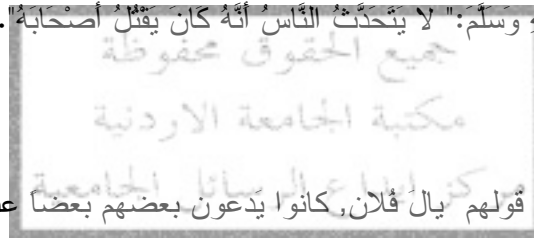 وَسَلَّمَ:" لا يَتَحَدَّثُ النَّاسُ أَنَّهُ كَانَ يَقْتُلُ أَصْحَابَهُ".
جميع الحقوق محفوظة
مكتبة الجامعة الاردنية
مركز ايداع الرسائل الجامعية
قولهم يالَ فُلان, كانوا يَدعون بعضهم بعضاً